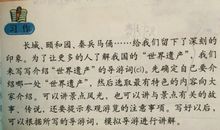 习作
长城、颐和园、秦兵马俑……给我们留下了深刻的
印象。为了让更多的人了解我国的“世界遗产”，我们
来写写介绍“世界遗产”的导游词(cí)。先确定自己要介
绍哪一处“世界遗产”，然后选取最有特色的内容向大
家介绍，可以讲景点风光，也可以讲与景点有关的故
事、传说，还要提示来观游览的注意事项。写好以后，
可以根据所写的导游词，模拟导游进行讲解。